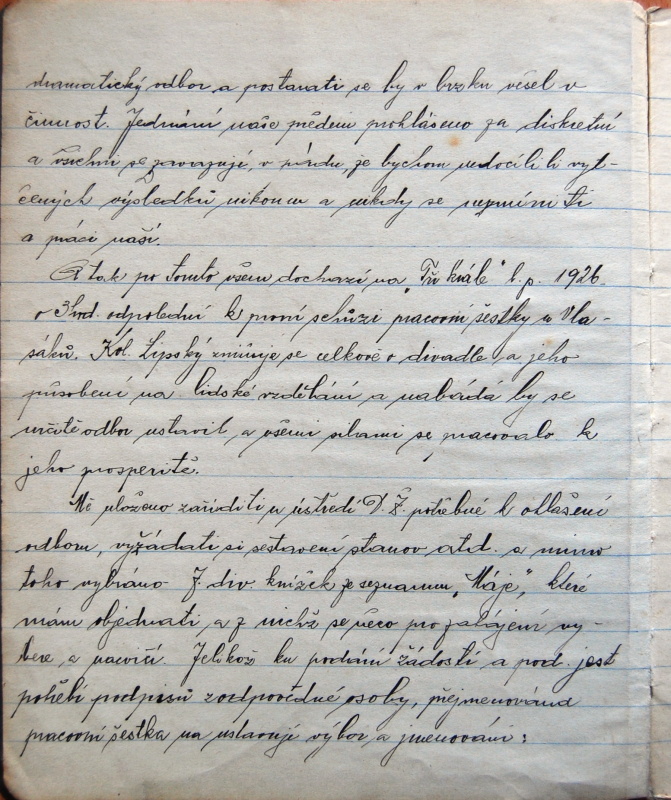 dramatický odbor, a postarati se by v brzku věšel v
činnost. Jednání naše předem prohlášeno za diskretní
a všichni se zavazují, v pádu, že bychom nedocílili vyt-
čených výsledků nikomu a nikdy se nezmíniti
a práci naší.
A tak po tomto všem dochází na "Tři krále" l. p. 1926
o 3 hod. odpolední k první schůzi pracovní šestky u Vla-
sáků. Kol. Lipský zmiňuje se celkově o divadle a jeho
působení na lidské vzdělání a nabádá by se
určitě odbor ustavil a všemi silami se pracovalo k
jeho prosperitě.
Mě uloženo zaříditi u ústředí D. Ž. potřebné k ohlášení
odboru, vyžádati si sestavení stanov atd. a mimo
toho vybráno 7. div. knížek ze seznamu "Máje", které
mám objednati a z nichž se něco pro zahájení vy-
bere a nacvičí. Jelikož ku podání žádostí a pod. jest
potřebí podpisů zodpovědné osoby, přejmenována
pracovní šestka na ustavující výbor a jmenováni: